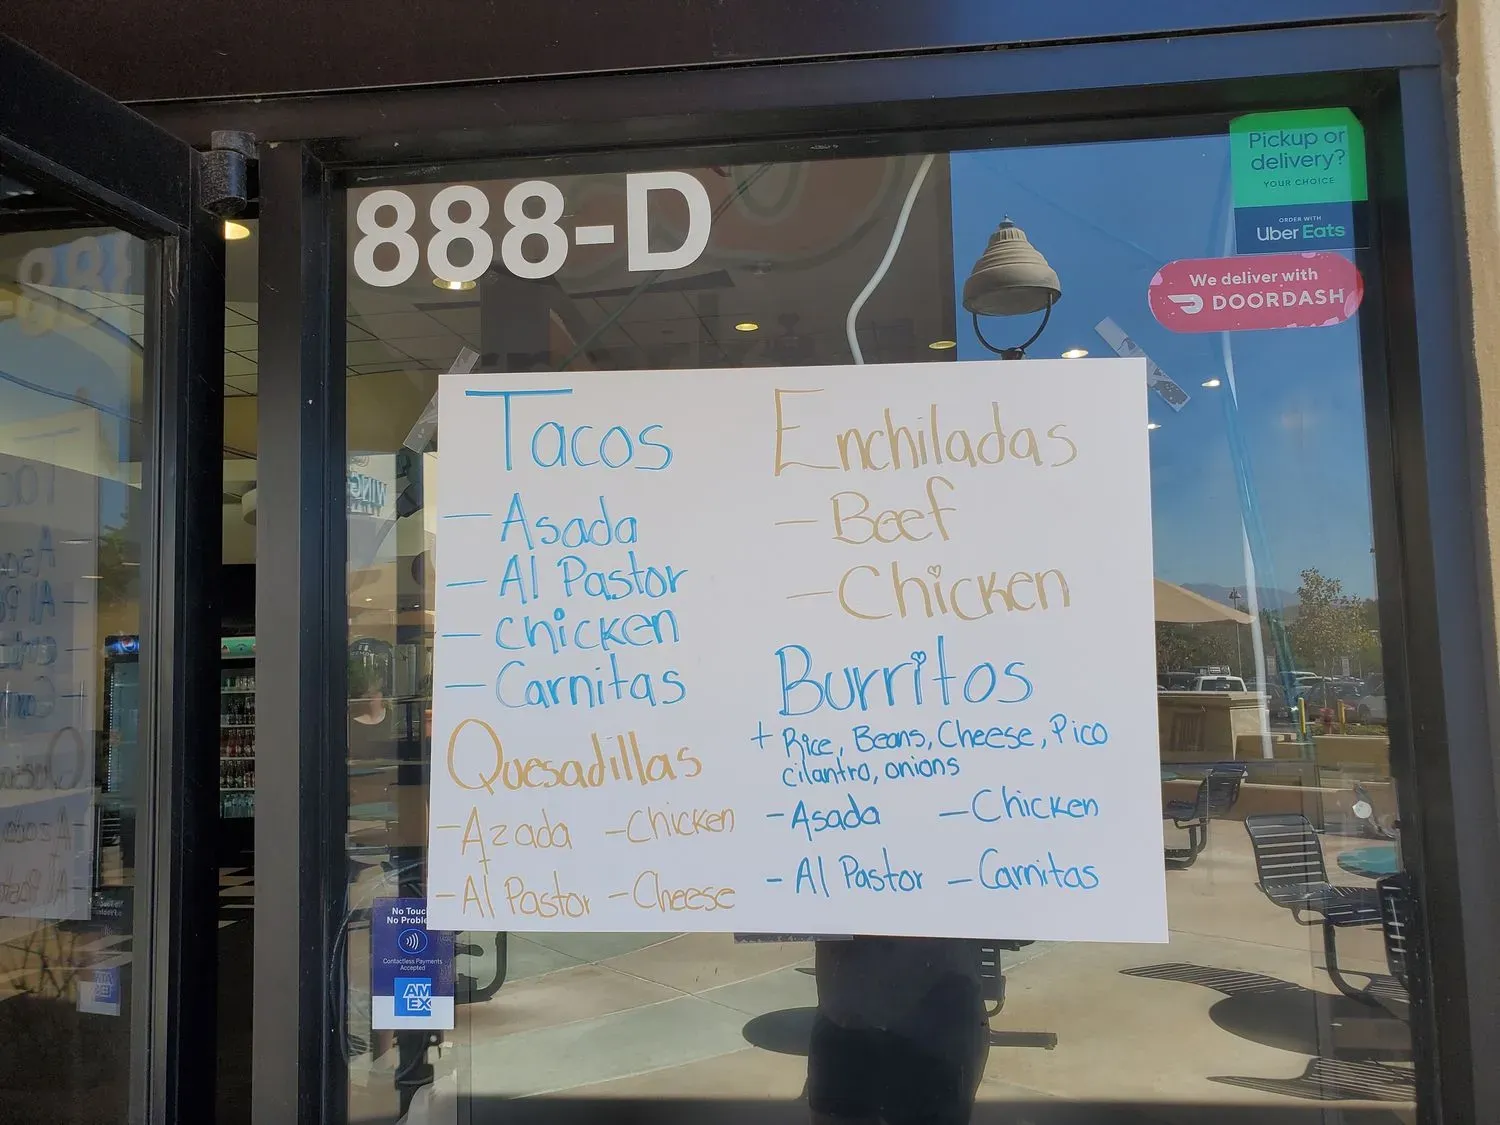 888-D
Pickup or
delivery?
YOUR CHOICE
ORDER WITH
Uber Eats
We deliver with
DOORDASH
Tacos
- Asada
- Al Pastor
- Chicken
- Carnitas
Quesadillas
- Azada - Chicken
- Al Pastor - Cheese
Enchiladas
- Beef
- Chicken
Burritos
+ Rice, Beans, Cheese, Pico
cilantro, onions
- Asada - Chicken
- Al Pastor - Carnitas
No Touc
No Proble
Contactless Payments
Accepted
AM
EX
WING